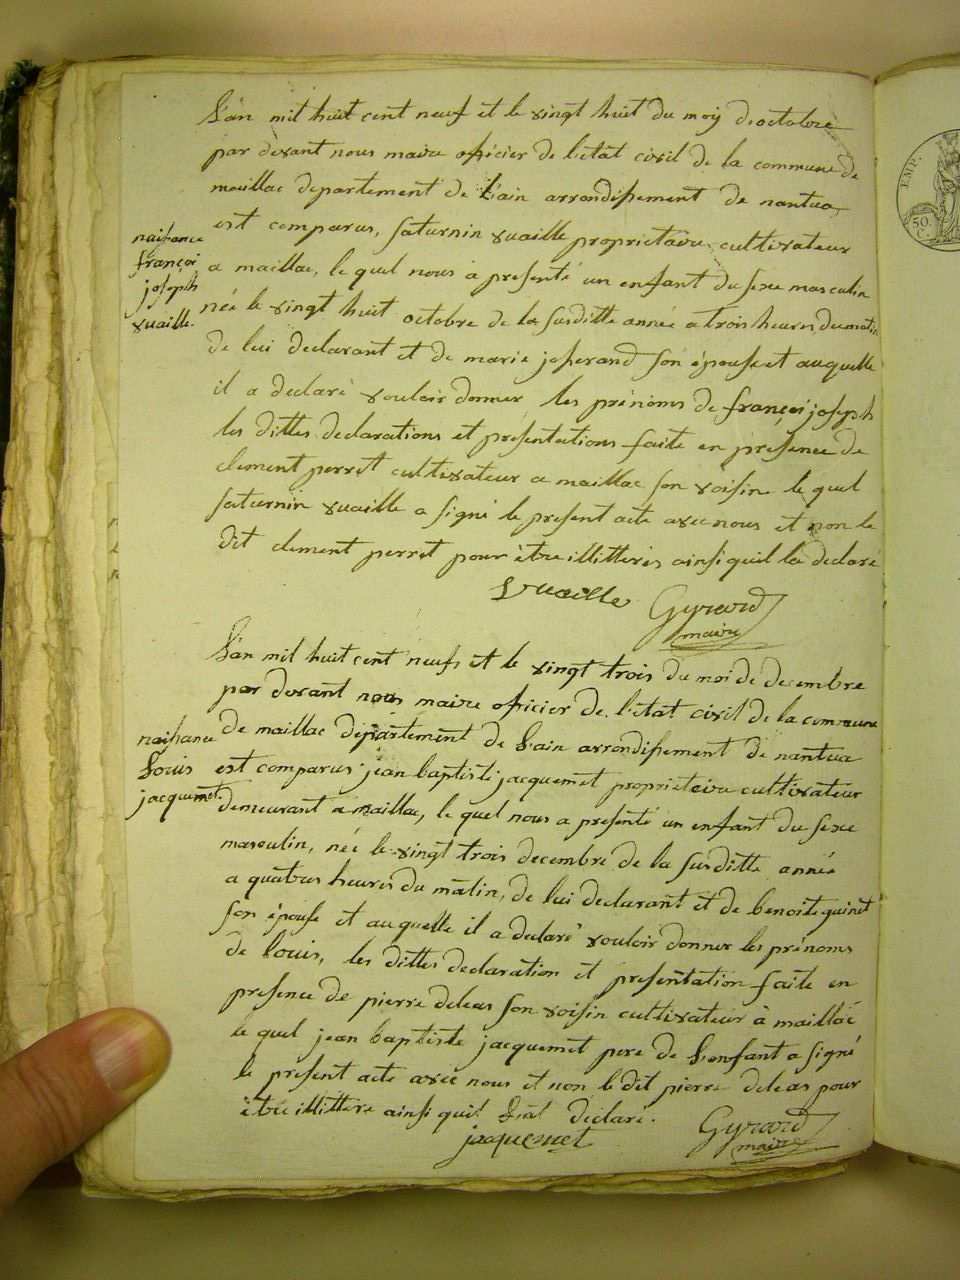 L'an mil huit cent neuf et le vingt huit du moy d'octobre
par devant nous maire officier de l'etat civil de la commune de
maillac departement de L'ain arrondissement de nantua,
est comparus, saturnin vuaille proprietaire cultivateur
naissance
françoi
joseph
vuaille.
a maillac, le quel nous a presenté un enfant du sexe masculin
née le vingt huit octobre de la susditte année a trois heures du matin
de lui declarant et de marie josserand son épouse et auquelle
il a declaré vouloir donner les prénoms de françoi joseph
les dittes declarations et presentations faite en presence de
clement perret cultivateur a maillac son voisin le quel
saturnin vuaille a signé le present acte avec nous et non le
dit clement perret pour être illitterés ainsi quil la declaré
Svuaille Gyrard
maire
L'an mil huit cent neufs et le vingt trois du moi de decembre
par devant nous maire officier de l'etat civil de la commune
de maillac departement de L'ain arrondissement de nantua
naissance
Louis
jacquemet.
est comparus jean baptiste jacquemet proprietaire cultivateur
demeurant a maillac, le quel nous a presenté un enfant du sexe
masculin, née le vingt trois decembre de la susditte année
a quatres heures du matin, de lui declarant et de benoite guinet
son épouse et auquelle il a declaré vouloir donner les prénoms
de Louis, les dittes declaration et presentation faite en
presence de pierre deleas son voisin cultivateur à maillac
le quel jean baptiste jacquemet pere de L'enfant a signé
le present acte avec nous et non le dit pierre deleas pour
être illittere ainsi quil L'at declaré.
jacquemet Gyrard
maire
EMP.
50
C.